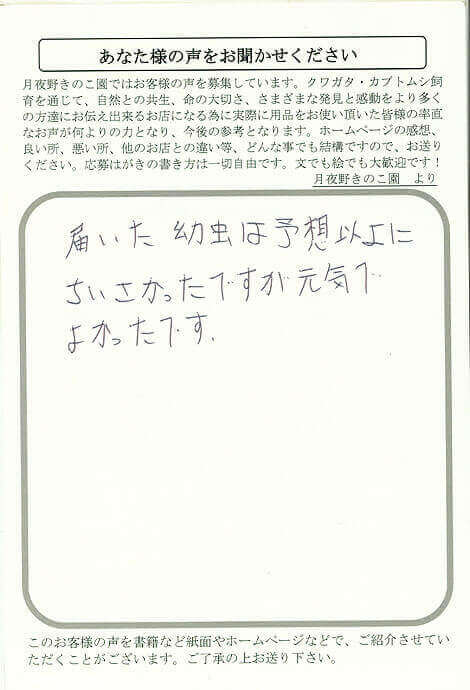 あなた様の声をお聞かせください
月夜野きのこ園ではお客様の声を募集しています。クワガタ・カブトムシ飼
育を通じて、自然との共生、命の大切さ、さまざまな発見と感動をより多く
の方達にお伝え出来るお店になる為に実際に用品をお使い頂いた皆様の率直
なお声が何よりの力となり、今後の参考となります。ホームページの感想、
良い所、悪い所、他のお店との違い等、どんな事でも結構ですので、お送り
ください。応募はがきの書き方は一切自由です。文でも絵でも大歓迎です！
月夜野きのこ園　より
届いた 幼虫は予想以上に
ちいさかったですが元気で
よかったです.
このお客様の声を書籍など紙面やホームページなどで、ご紹介させてい
ただくことがございます。ご了承の上お送り下さい。